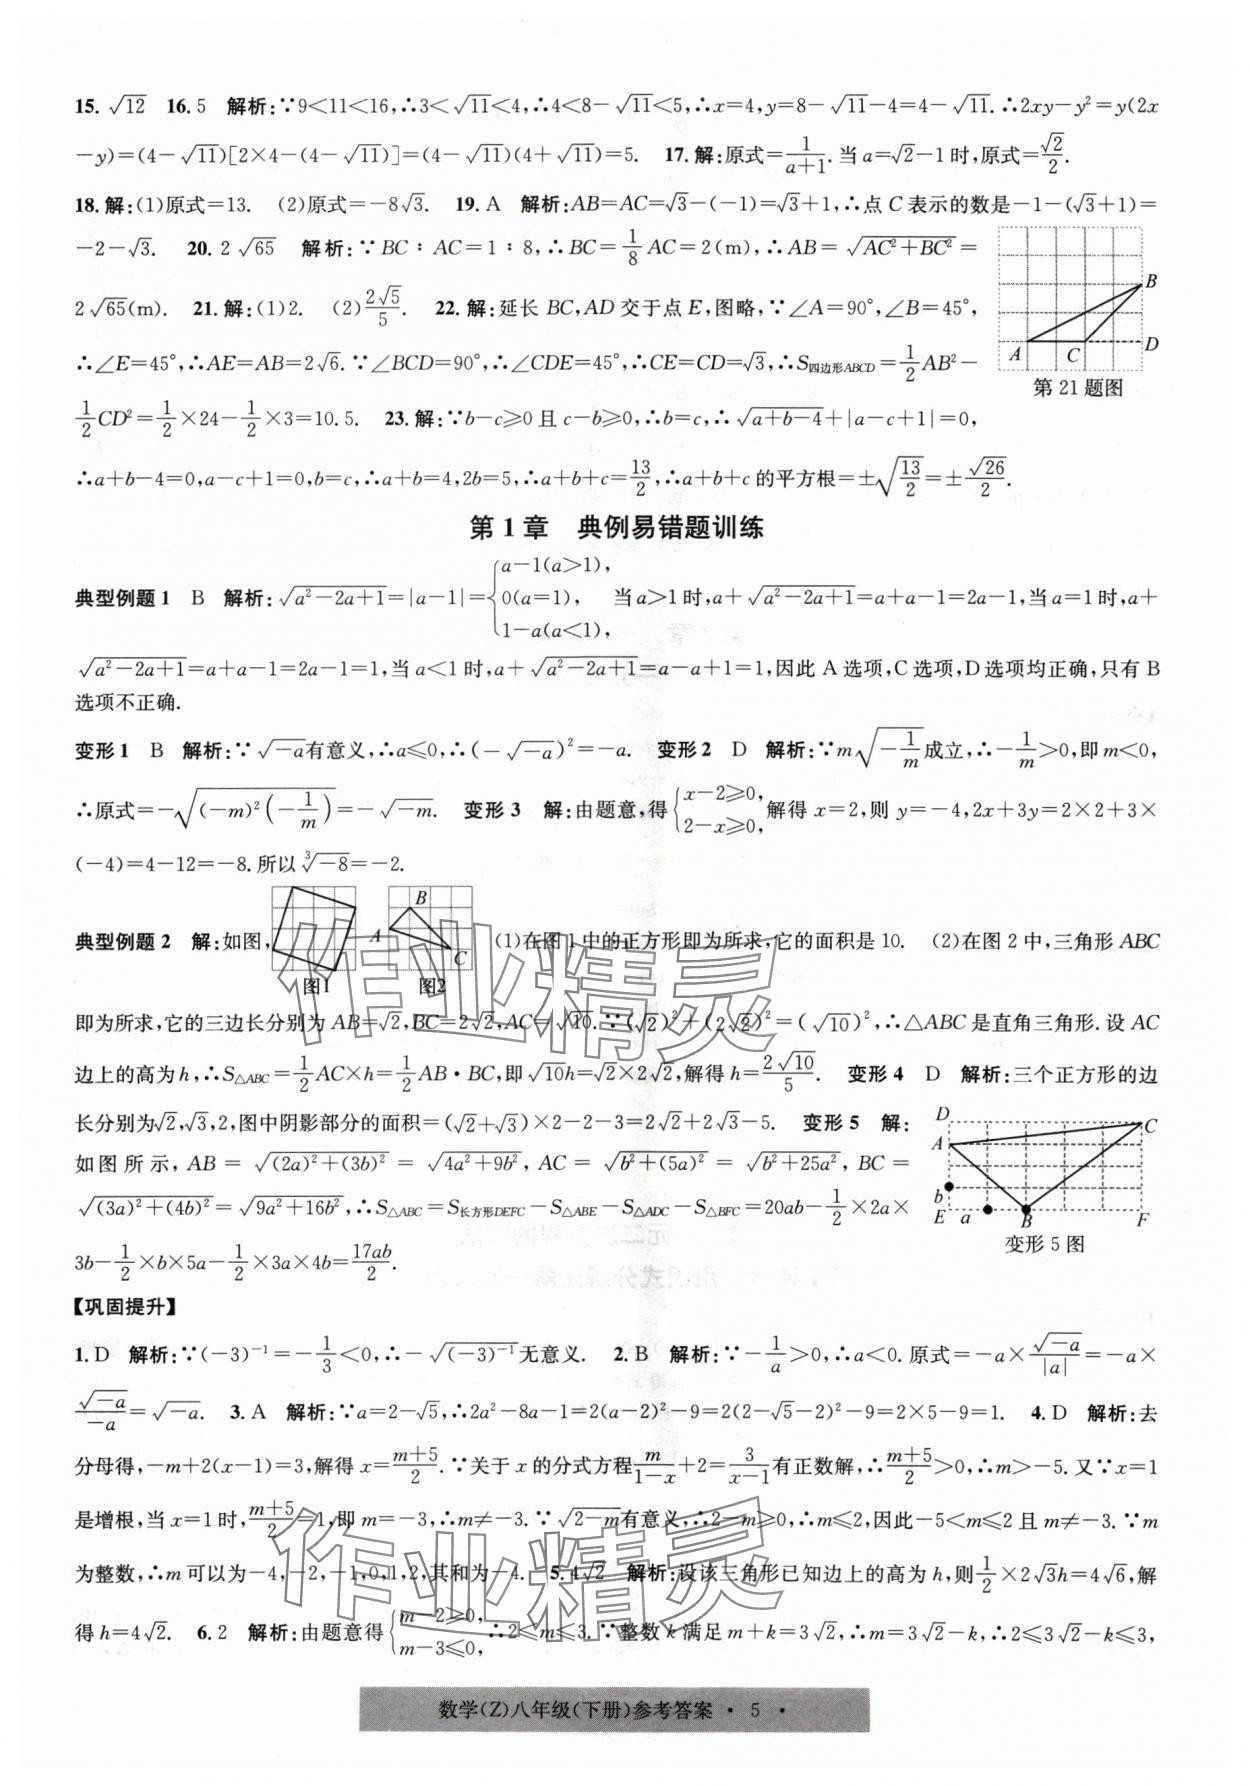 15. √12  16. 5  解析:∵9<11<16,∴3<√11<4,∴4<8-√11<5,∴x=4,y=8-√11-4=4-√11.∴2xy-y²=y(2x
-y)=(4-√11)[2×4-(4-√11)]=(4-√11)(4+√11)=5.  17. 解:原式=1/(a+1).当a=√2-1时,原式=√2/2.
18. 解:(1)原式=13.  (2)原式=-8√3.  19. A  解析:AB=AC=√3-(-1)=√3+1,∴点C表示的数是-1-(√3+1)=
-2-√3.  20. 2√65  解析:∵BC∶AC=1∶8,∴BC=1/8 AC=2(m),∴AB=√(AC²+BC²)=
2√65(m).  21. 解:(1)2.  (2)2√5/5.  22. 解:延长BC,AD交于点E,图略,∵∠A=90°,∠B=45°,
∴∠E=45°,∴AE=AB=2√6.∵∠BCD=90°,∴∠CDE=45°,∴CE=CD=√3,∴S四边形ABCD=1/2 AB²-
1/2 CD²=1/2×24-1/2×3=10.5.  23. 解:∵b-c≥0且c-b≥0,∴b=c,∴√(a+b-4)+|a-c+1|=0,
∴a+b-4=0,a-c+1=0,b=c,∴a+b=4,2b=5,∴a+b+c=13/2,∴a+b+c的平方根=±√(13/2)=±√26/2.
A
C
B
D
第21题图
第1章  典例易错题训练
典型例题1  B  解析:√(a²-2a+1)=|a-1|={a-1(a>1), 0(a=1), 1-a(a<1),  当a>1时,a+√(a²-2a+1)=a+a-1=2a-1,当a=1时,a+
√(a²-2a+1)=a+a-1=2a-1=1,当a<1时,a+√(a²-2a+1)=a-a+1=1,因此A选项,C选项,D选项均正确,只有B
选项不正确.
变形1  B  解析:∵√(-a)有意义,∴a≤0,∴(-√(-a))²=-a.  变形2  D  解析:∵m√(-1/m)成立,∴-1/m>0,即m<0,
∴原式=-√((-m)²(-1/m))=-√(-m).  变形3  解:由题意,得{x-2≥0, 2-x≥0,解得x=2,则y=-4,2x+3y=2×2+3×
(-4)=4-12=-8.所以∛(-8)=-2.
典型例题2  解:如图,  (1)在图1中的正方形即为所求,它的面积是10.  (2)在图2中,三角形ABC
图1
A
B
C
图2
即为所求,它的三边长分别为AB=√2,BC=2√2,AC=√10.∵(√2)²+(2√2)²=(√10)²,∴△ABC是直角三角形.设AC
边上的高为h,∴S△ABC=1/2 AC×h=1/2 AB·BC,即√10h=√2×2√2,解得h=2√10/5.  变形4  D  解析:三个正方形的边
长分别为√2,√3,2,图中阴影部分的面积=(√2+√3)×2-2-3=2√2+2√3-5.  变形5  解:
如图所示,AB=√((2a)²+(3b)²)=√(4a²+9b²),AC=√(b²+(5a)²)=√(b²+25a²),BC=
√((3a)²+(4b)²)=√(9a²+16b²),∴S△ABC=S长方形DEFC-S△ABE-S△ADC-S△BFC=20ab-1/2×2a×
3b-1/2×b×5a-1/2×3a×4b=17ab/2.
D
C
A
b
E
a
B
F
变形5图
【巩固提升】
1. D  解析:∵(-3)⁻¹=-1/3<0,∴-√((-3)⁻¹)无意义.  2. B  解析:∵-1/a>0,∴a<0.原式=-a×√(-a)/|a|=-a×
√(-a)/(-a)=√(-a).  3. A  解析:∵a=2-√5,∴2a²-8a-1=2(a-2)²-9=2(2-√5-2)²-9=2×5-9=1.  4. D  解析:去
分母得,-m+2(x-1)=3,解得x=(m+5)/2.∵关于x的分式方程m/(1-x)+2=3/(x-1)有正数解,∴(m+5)/2>0,∴m>-5.又∵x=1
是增根,当x=1时,(m+5)/2=1,即m=-3,∴m≠-3.∵√(2-m)有意义,∴2-m≥0,∴m≤2,因此-5<m≤2且m≠-3.∵m
为整数,∴m可以为-4,-2,-1,0,1,2,其和为-4.  5. 4√2  解析:设该三角形已知边上的高为h,则1/2×2√3h=4√6,解
得h=4√2.  6. 2  解析:由题意得{m-2≥0, m-3≤0,∴2≤m≤3.∵整数k满足m+k=3√2,∴m=3√2-k,∴2≤3√2-k≤3,
数学(Z)八年级(下册)参考答案 · 5 ·
作业精灵
作业精灵